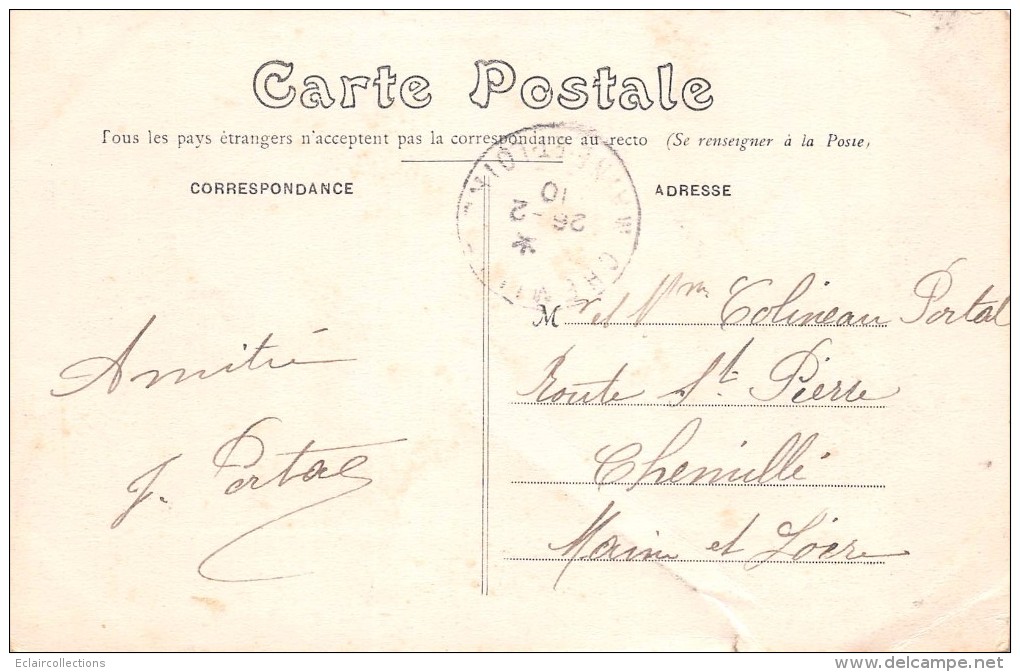 Carte Postale
Tous les pays étrangers n'acceptent pas la correspondance au recto (Se renseigner à la Poste)
CORRESPONDANCE
ADRESSE
CHEMILLÉ
MAINE-ET-LOIRE
10
26-2
*
Amitié
J. Portal
Mr et Mme Colineau Portal
Route St Pierre
Chemillé
Maine et Loire
Eclaircollections
www.delcampe.net